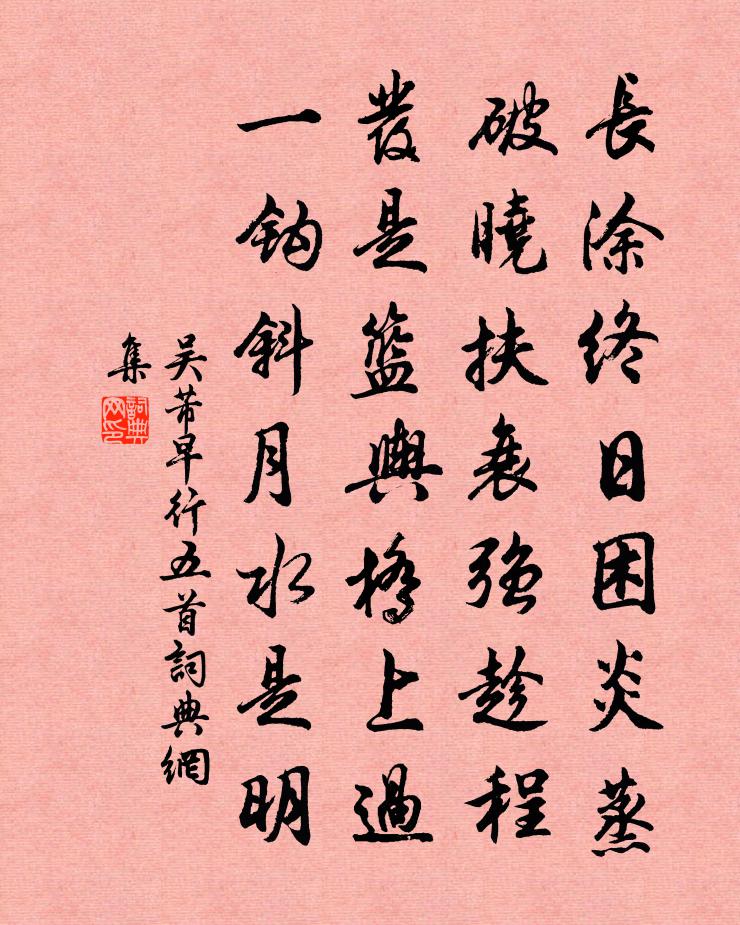 長涂終日困炎蒸
破曉扶衰強趁程
發是籃輿橋上過
一鈎斜月水是明
吴芾早行五首詞典網
集
詞典网印